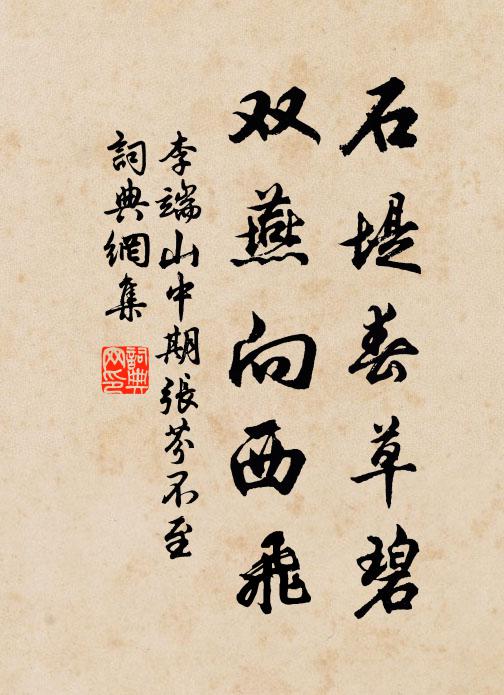 石堤春草碧
双燕向西飛
李端山中期張芬不至
詞典網集
詞典網印